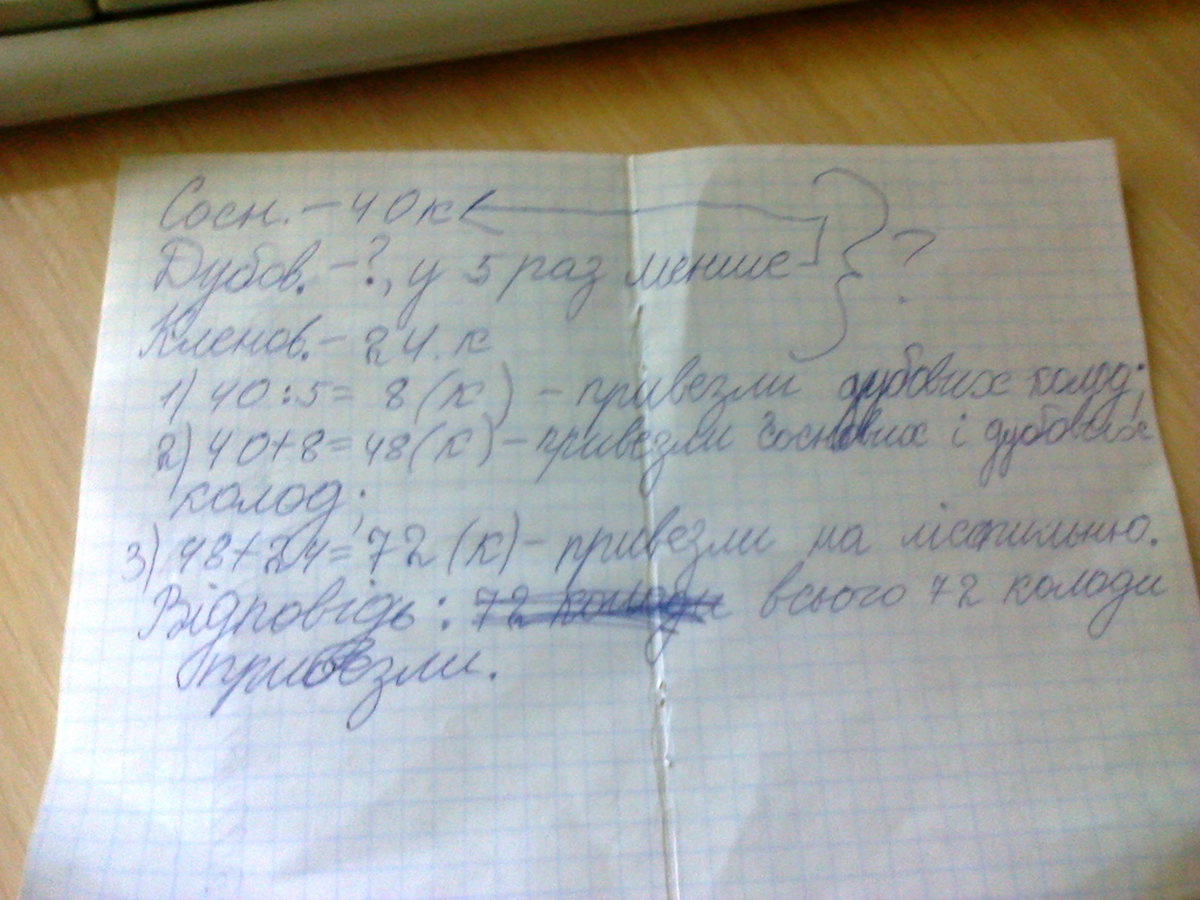 Сосн. - 40 к
Дубов. - ?, у 5 раз менше ?
Кленов. - 24. к
1) 40:5= 8 (к) - привезли дубових колод;
2) 40+8=48(к) - привезли соснових і дубових
колод;
3) 48+24=72 (к) - привезли на лісопильню.
Відповідь: 72 колоди всього 72 колоди
привезли.